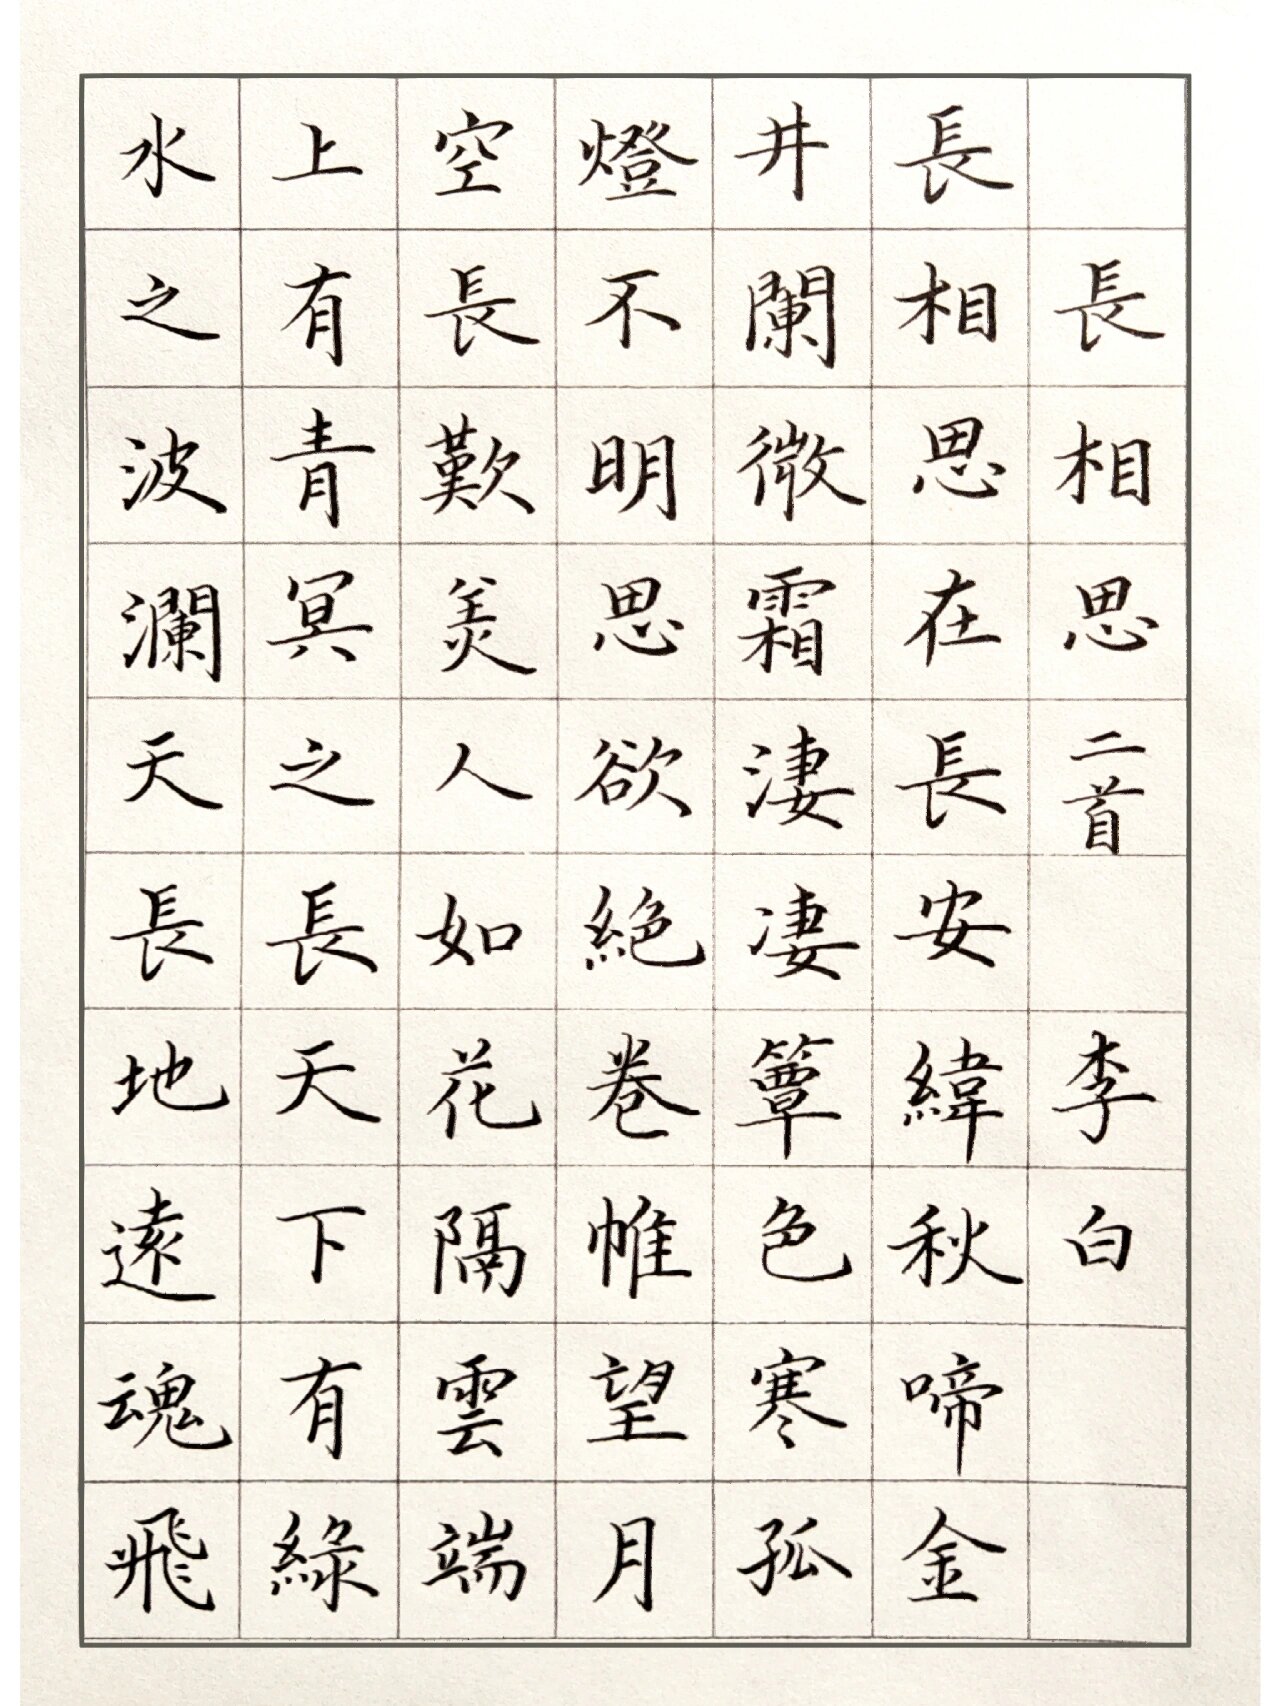 長相思二首李白
長相思在長安緯秋啼金
井闌微霜淒凄簟色寒孤
燈不明思欲絕卷帷望月
空長歎美人如花隔雲端
上有青冥之長天下有綠
水之波瀾天長地遠魂飛